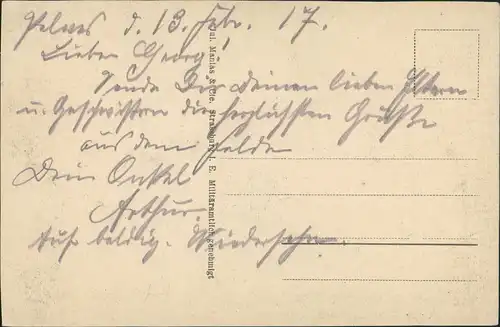 Pelves d. 13. Febr. 17.
Lieber Georg!
Sende Dir Deinen lieben Eltern
u. Geschwistern die herzlichsten Grüße
aus dem Felde
Dein Onkel
Arthur.
Auf baldig. Wiedersehn.
Jul. Manias & Cie. Strassburg i. E. Militäramtlich genehmigt